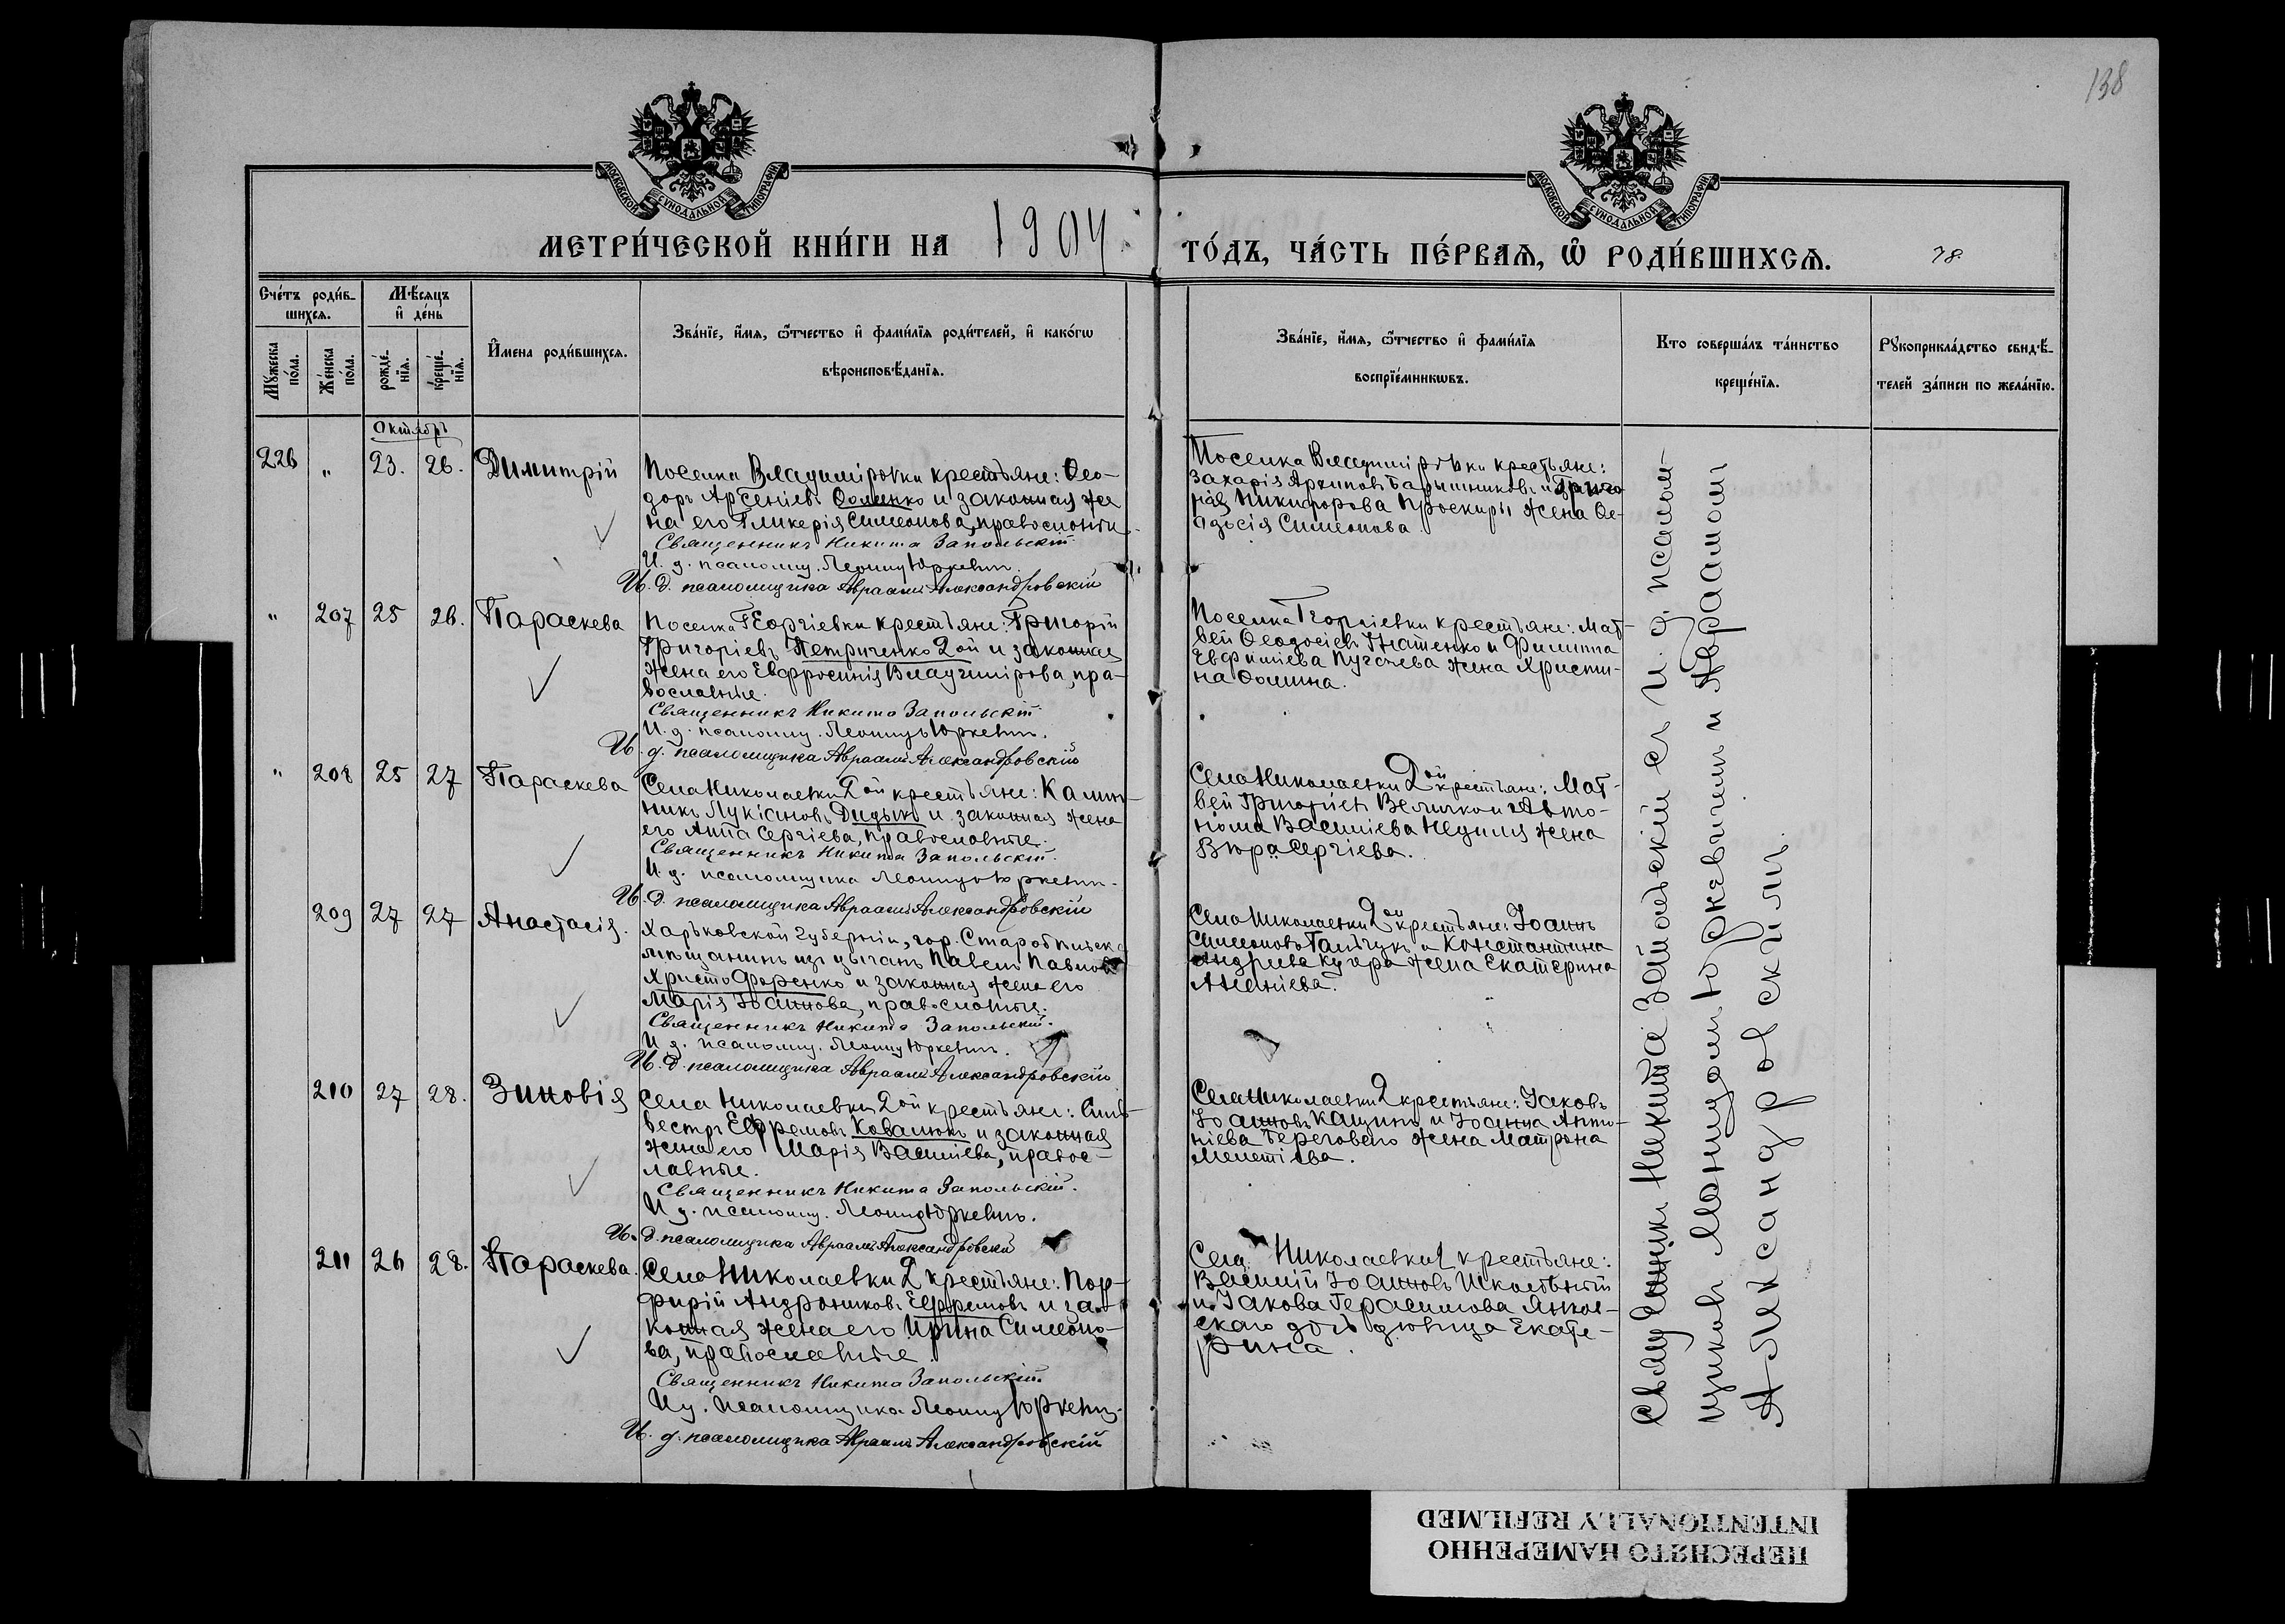 138
МОСКОВСКОЙ СѴНОДАЛЬНОЙ ТИПОГРАФІИ.
МОСКОВСКОЙ СѴНОДАЛЬНОЙ ТИПОГРАФІИ.
МЕТРИ́ЧЕСКОЙ КНИ́ГИ НА 1904
ГО́ДЪ, ЧА́СТЬ ПЕ́РВАЯ, Ѽ РОДИ́ВШИХСЯ.
78.
Сче́тъ роди́в-
шихся.
Мѣ́сяцъ
и҆ де́нь
Мꙋ́жеска
по́ла.
Же́нска
по́ла.
рожде́-
нїя.
креще́-
нїя.
И҆мена роди́вшихся.
Зва́нїе, и҆́мя, ѻ҆́тчество и҆ фами́лїя роди́телей, и҆ како́гѡ
вѣроисповѣ́данїя.
Зва́нїе, и҆́мя, ѻ҆́тчество и҆ фами́лїя
воспрїе́мникѡвъ.
Кто соверша́лъ та́инство
креще́нїя.
Рꙋкоприкла́дство свидѣ́-
телей за́писи по жела́нїю.
Октябрь
226 " 23. 26. Димитрій
Поселка Владиміровки крестьяне: Ѳео-
доръ Арсеніевъ Ѳоменко и законная же
на его Гликерія Симеонова, православные
Священникъ Никита Запольскій
И. д. псаломщ. Леонид Юркевич.
И. д. псаломщика Авраамъ Александровскій
Поселка Владиміровки крестьяне:
Захарія Архиповъ Барышниковъ и Григо
рія Никифорова Проскиры жена Ѳе-
одосія Симеонова
" 207 25 26. Параскева
Поселка Георгіевки крестьяне: Григорій
Григоріевъ Петриченко 2ой и законная
жена его Евфросинія Владимірова, пра-
вославные.
Священникъ Никита Запольскій
И. д. псаломщ. Леонидъ Юркевич.
И. д. псаломщика Авраамъ Александровскій
Поселка Георгіевки крестьяне: Мат-
вей Ѳеодосіевъ Игнатенко и Филиппа
Евфиміева Пугачева жена Христи-
на Ѳомина.
" 208 25 27 Параскева
Села Николаевки 2ой крестьяне: Калин-
никъ Лукіановъ Дидыкъ и законная жена
его Анна Сергіева, православные.
Священникъ Никита Запольскій.
И. д. псаломщика Леонидъ Юркевич.
И. д. псаломщика Авраамъ Александровскій
Села Николаевки 2ой крестьяне: Мат-
вей Григоріевъ Величко и Авто-
нома Василіева жена
Вѣра Сергіева.
209 27 27 Анастасія.
Харьковской губерніи, гор. Старобѣльска
мѣщанинъ изъ цыганъ Павелъ Павловъ
Христофоренко и законная жена его
Марія Іоаннова, православные.
Священникъ Никита Запольскій.
И д. псаломщ. Леонид Юркевич.
И. д. псаломщика Авраамъ Александровскій
Села Николаевки 2ой крестьяне: Іоаннъ
Симеоновъ и Константина
Андреева Кучера жена Екатерина
Ананіева.
210 27 28. Зиновія
Села Николаевки 2ой крестьяне: Силь-
вестръ Ефремовъ Ковалюкъ и законная
жена его Марія Василіева, правос-
лавные.
Священникъ Никита Запольскій.
И д. псаломщ. Леонид Юркевич.
И. д. псаломщика Авраамъ Александровскій
Села Николаевки 2 крестьяне: Іаковъ
Іоанновъ Кащинъ и Іоанна Анто-
ніева Берегового жена Матрона
Мелетіева.
211 26 28. Параскева.
Села Николаевки 2 крестьяне: Пор-
фирій Андрониковъ Ефремовъ и за-
конная жена его Ирина Симеоно-
ва, православные.
Священникъ Никита Запольскій.
И д. псаломщика Леонид Юркевич.
И. д. псаломщика Авраамъ Александровскій
Села Николаевки 2 крестьяне:
Василій Іоанновъ Школьный
и Іакова Герасимова
дочь дѣвица Екате-
рина.
Священникъ Никита Запольскій съ И. д. псалом-
щиковъ Леонидомъ Юркевичемъ и Авраамомъ
Александровскими.
ПЕРЕСНЯТО НАМЕРЕННО
INTENTIONALLY REFILMED